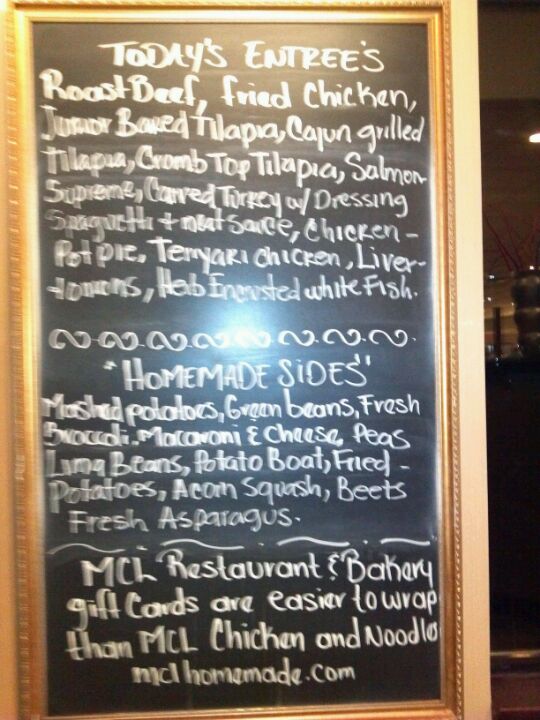 TODAY'S ENTREE'S
Roast Beef, fried Chicken,
Junior Baked Tilapia, Cajun grilled
tilapia, Cromb Top Tilapia, Salmon-
Supreme, Carved Turkey w/ Dressing
Spaghetti + meat sauce, Chicken-
Pot pie, Terryaki chicken, Liver-
+onions, Herb Encrusted white Fish.
"HOMEMADE SIDES"
Mashed potatoes, Green beans, Fresh
Broccoli, Macaroni & Cheese, Peas
Lima Beans, Potato Boat, Fried-
Potatoes, Acorn Squash, Beets
Fresh Asparagus.
MCL Restaurant & Bakery
gift Cards are easier to wrap
than MCL Chicken and Noodles
mclhomemade.com